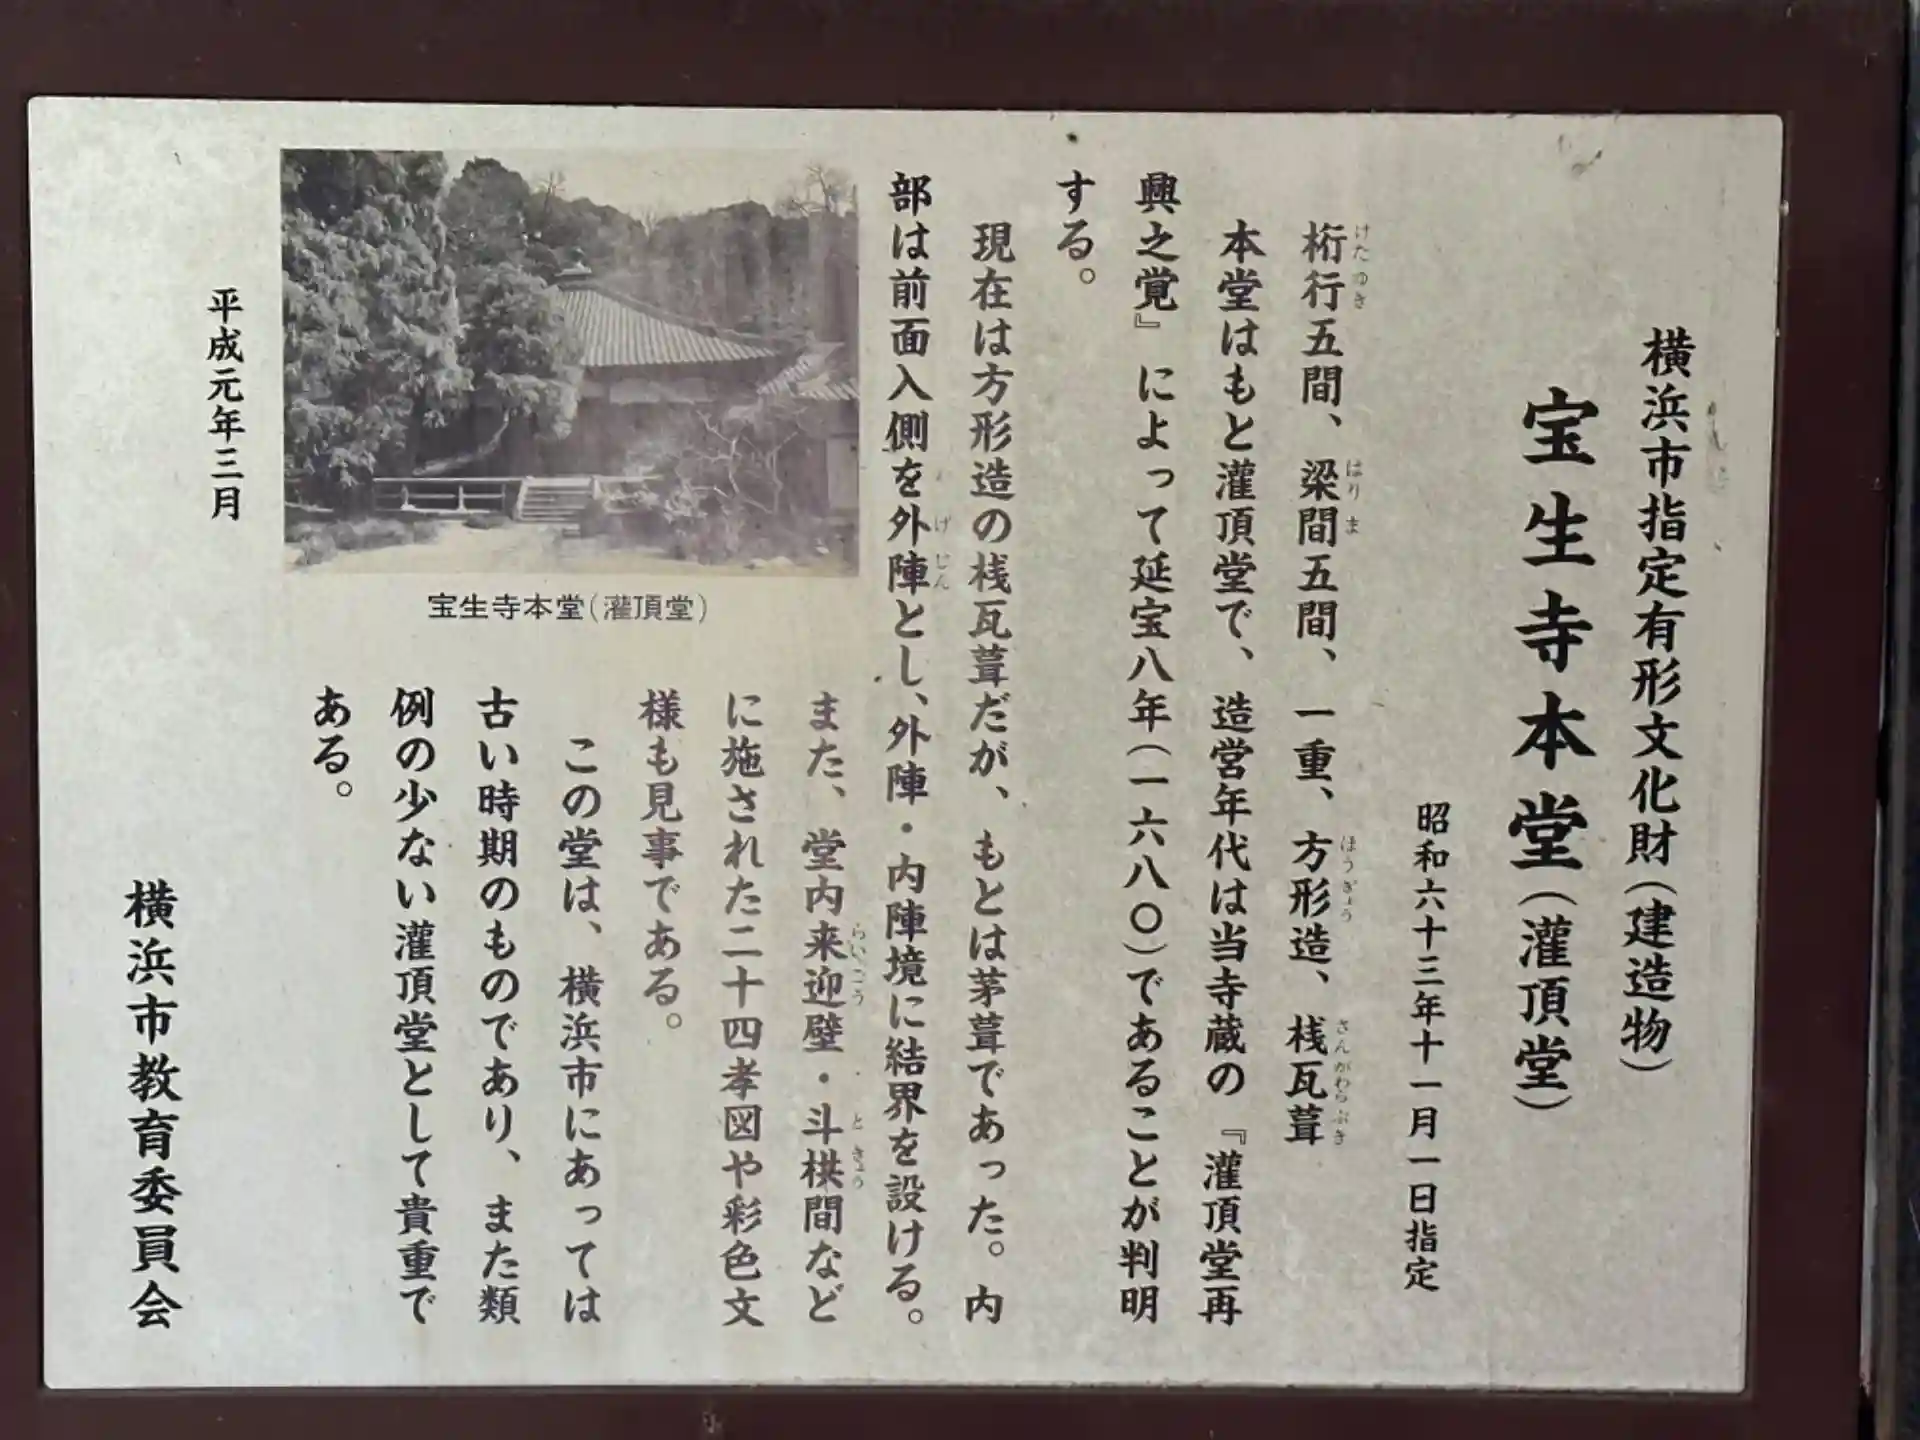 横浜市指定有形文化財（建造物）
宝生寺本堂（灌頂堂）
昭和六十三年十一月一日指定
桁行五間、梁間五間、一重、方形造、桟瓦葺
けたゆき
はりま
ほうぎょう
さんがわらぶき
本堂はもと灌頂堂で、造営年代は当寺蔵の『灌頂堂再
興之覚』によって延宝八年（一六八〇）であることが判明
する。
現在は方形造の桟瓦葺だが、もとは茅葺であった。内
部は前面入側を外陣とし、外陣・内陣境に結界を設ける。
げじん
また、堂内来迎壁・斗栱間など
らいごう
ときょう
に施された二十四孝図や彩色文
様も見事である。
この堂は、横浜市にあっては
古い時期のものであり、また類
例の少ない灌頂堂として貴重で
ある。
宝生寺本堂（灌頂堂）
平成元年三月
横浜市教育委員会